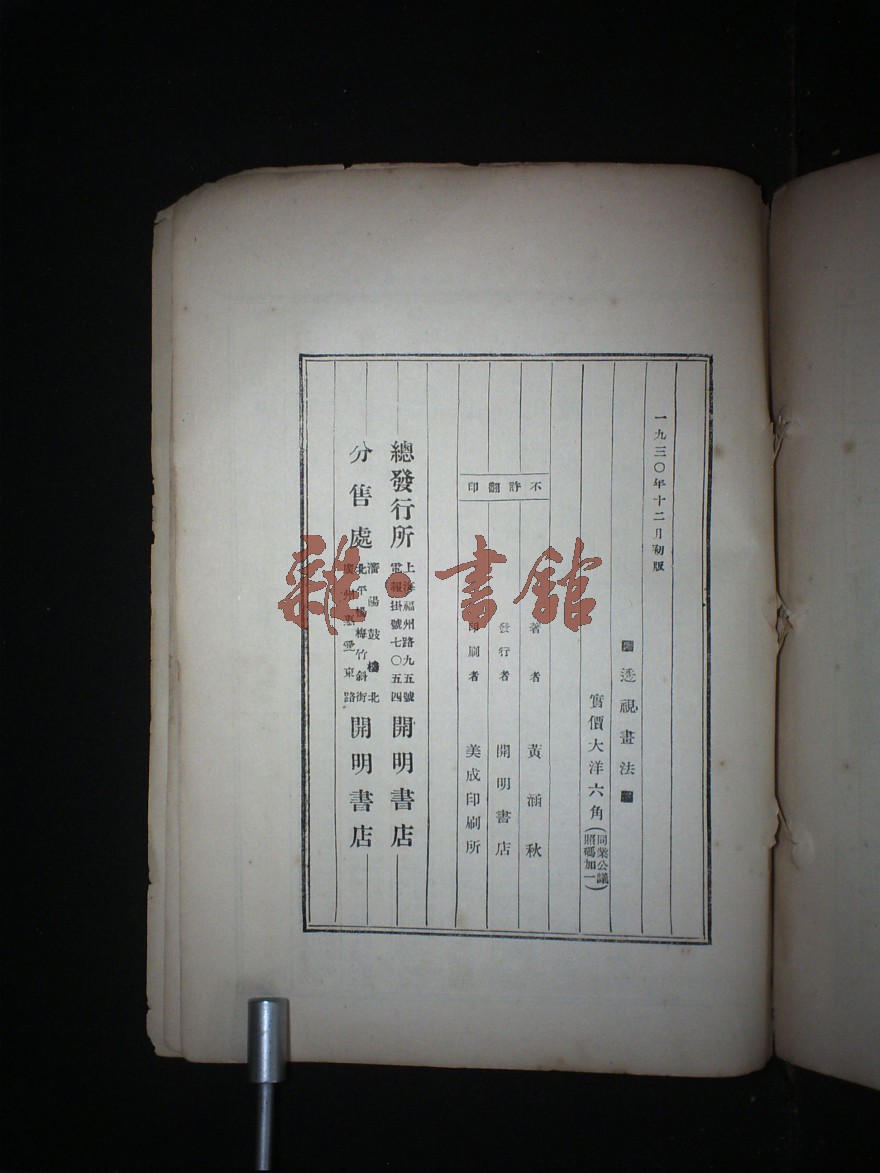 一九三〇年十二月初版
透視畫法
實價大洋六角(同業公議照碼加一)
不許翻印
著者 黃涵秋
發行者 開明書店
印刷者 美成印刷所
總發行所 上海福州路九五號 電報掛號七〇五四 開明書店
分售處 瀋陽鼓樓北 北平楊梅竹斜街 廣州惠愛東路 開明書店
雜·書館